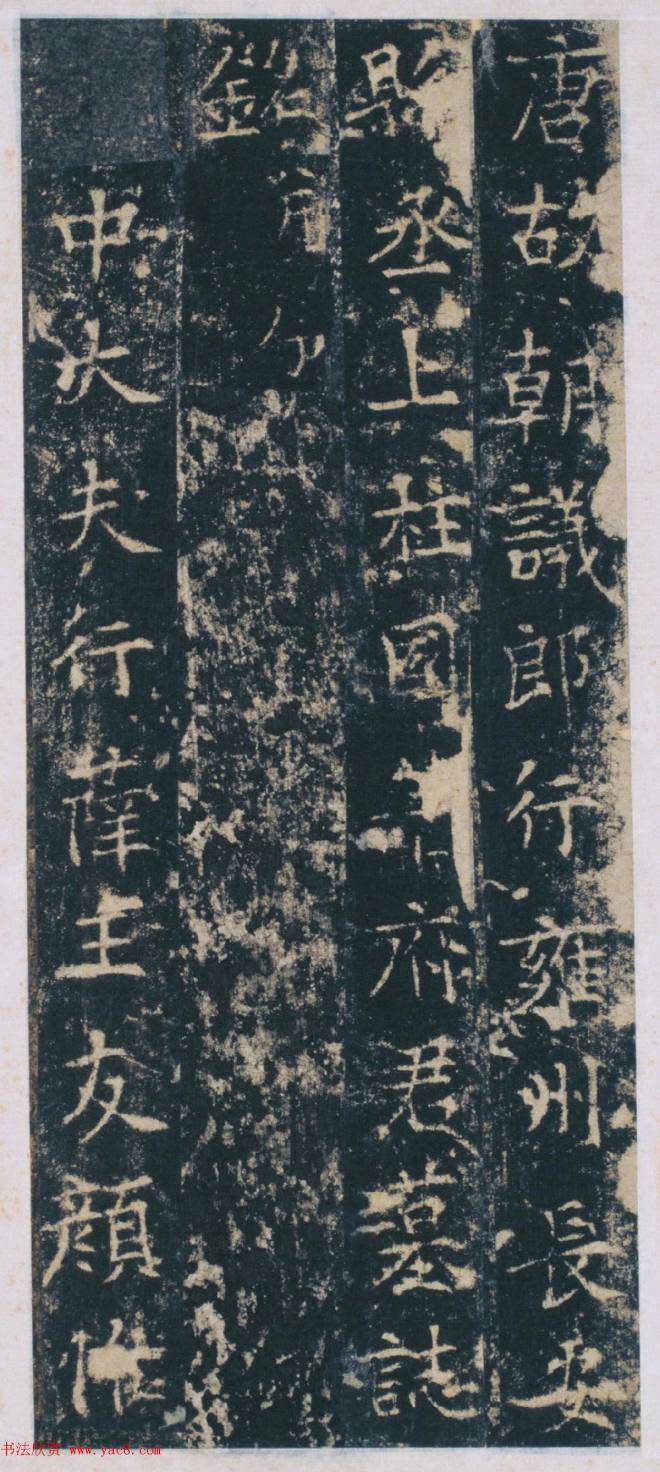 唐故朝議郎行雍州長安
縣丞上柱國府君墓誌
銘并
中大夫行薛王友顏惟
书法欣赏 www.yac8.com